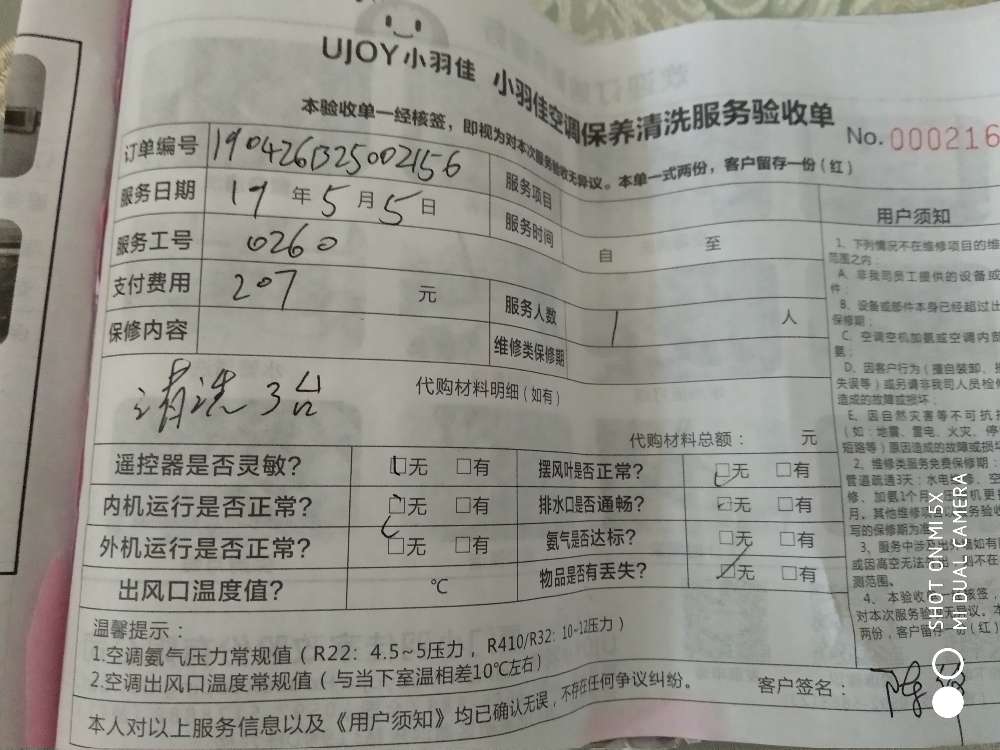 UJOY小羽佳 小羽佳空调保养清洗服务验收单
本验收单一经核签，即视为对本次服务验收无异议。本单一式两份，客户留存一份(红)
No.000216
订单编号 1904261325002156 服务项目
服务日期 19年5月5日 服务时间 自 至
服务工号 0260
支付费用 207 元 服务人数 1 人
保修内容 维修类保修期
清洗3台 代购材料明细(如有)
代购材料总额： 元
遥控器是否灵敏? □无 □有 摆风叶是否正常? □无 □有
内机运行是否正常? □无 □有 排水口是否通畅? □无 □有
外机运行是否正常? □无 □有 氨气是否达标? □无 □有
出风口温度值? ℃ 物品是否有丢失? □无 □有
温馨提示：
1.空调氨气压力常规值(R22: 4.5~5压力，R410/R32: 10-12压力)
2.空调出风口温度常规值(与当下室温相差10℃左右)
本人对以上服务信息以及《用户须知》均已确认无误，不存在任何争议纠纷。 客户签名：
用户须知
1、下列情况不在维修项目的维
范围之内：
A、非我司员工提供的设备或
件；
B、设备或部件本身已经超过出
保修期；
C、空调空机加氨或空调内部
氨；
D、因客户行为(擅自装卸、
失误等)或另请非我司人员检修
造成的故障或损坏；
E、因自然灾害等不可抗
(如：地震、雷电、火灾、停
短路等)原因造成的故障或损
2、维修类服务免费保修期：
管道疏通3天；水电
修、加氨1个月
月。其他维修项
写的保修期为准
3、服务中涉及出
或因高空无法
测范围。
4、本验收
对本次服务验
两份，客户留存一份(红)
SHOT ON MI 5X
MI DUAL CAMERA